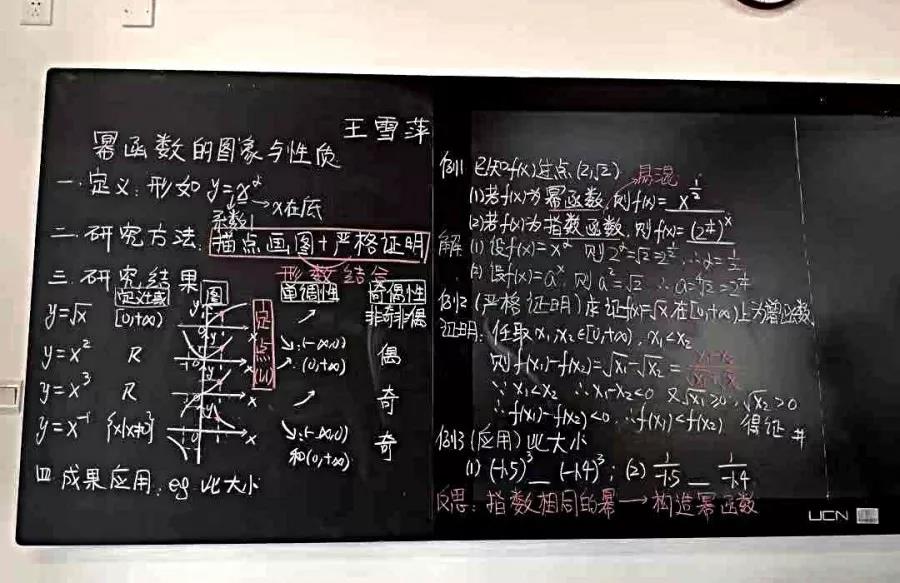 王雪萍
幂函数的图象与性质
一.定义:形如 y=x^α
系数1 → x在底
二.研究方法:描点画图+严格证明
形数结合
三.研究结果
定义域 图 单调性 奇偶性
y=√x [0,+∞) ↗ 非奇非偶
y=x² R ↘:(-∞,0) ↗:(0,+∞) 偶
y=x³ R ↗ 奇
y=x⁻¹ {x|x≠0} ↘:(-∞,0)和(0,+∞) 奇
定点(1,1)
四 成果应用:eg 比大小
例1 已知f(x)过点(2,√2) 易混
(1)若f(x)为幂函数,则f(x)=x^(1/2)
(2)若f(x)为指数函数,则f(x)=
解 (1)设f(x)=x^α 则2^α=√2=2^(1/2) ∴α=1/2
(2)设f(x)=a^x,则a²=√2 ∴a=
例2(严格证明)求证f(x)=√x在[0,+∞)上为增函数
证明:任取x₁,x₂∈[0,+∞),x₁<x₂
则f(x₁)-f(x₂)=√x₁-√x₂=(x₁-x₂)/(√x₁+√x₂)
∵x₁<x₂ ∴x₁-x₂<0 又√x₁≥0,√x₂>0
∴f(x₁)-f(x₂)<0,∴f(x₁)<f(x₂) 得证 #
例3(应用)比大小
(1)(-1.5)³__(-1.4)³;(2) 1/-1.5 __ 1/-1.4
反思:指数相同的幂→构造幂函数
UCN